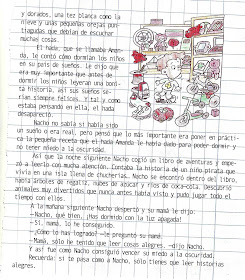 y dorados, una tez blanca como la
nieve y unas pequeñas orejas pun-
tiagudas que debían de escuchar
muchas cosas.
El hada, que se llamaba Aman-
da, le contó cómo dormían los niños
en su país de sueños. Le dijo que
era muy importante que antes de
dormir los niños leyeran una boni-
ta historia, así sus sueños se-
rían siempre felices. Y tal y como
estaba pensando en ella, el hada
desapareció.
Nacho no sabía si había sido
un sueño o era real, pero pensó que lo más importante era poner en prácti-
ca la pequeña receta que el hada Amanda le había dado para poder dormir y
no tener miedo a la oscuridad.
Así que la noche siguiente Nacho cogió un libro de aventuras y empe-
zó a leerlo con mucha atención. Contaba la historia de un niño pirata que
vivía en una isla llena de chucherías. Nacho se encontró dentro del libro,
había árboles de regaliz, nubes de azúcar y ríos de coca-cola. Descubrió
animales muy divertidos que nunca antes había visto y pudo jugar todo el
tiempo con ellos.
A la mañana siguiente Nacho despertó y su mamá le dijo:
—Nacho, ¡qué bien, ¡Has dormido con la luz apagada!
—Sí, mamá, lo he conseguido.
—¿Cómo lo has logrado? —le preguntó su mamá.
—Mamá, sólo he tenido que leer cosas alegres. —dijo Nacho.
Y así fue como Nacho consiguió vencer su miedo a la oscuridad.
Recuerda: si te pasa como a Nacho, sólo tienes que leer historias
alegres.